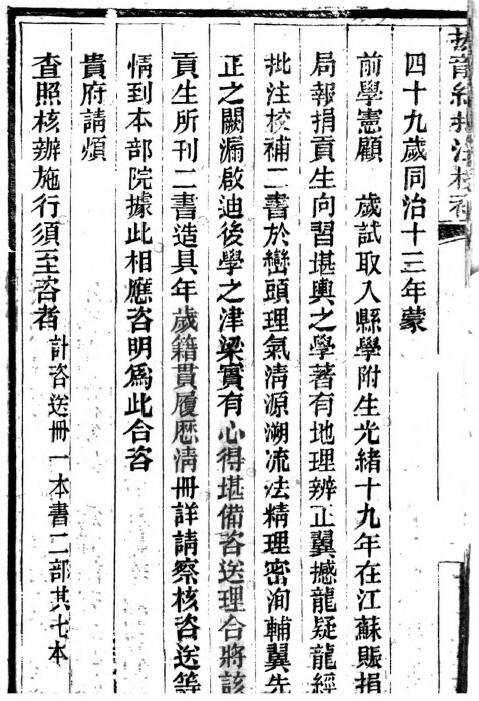 四十九歲同治十三年蒙
前學憲顧　歲試取入縣學附生光緒十九年在江蘇賑捐
局報捐貢生向習堪輿之學著有地理辨正翼撼龍疑龍經
批注校補二書於巒頭理氣淸源溯流法精理密洵輔翼先
正之闕漏啟迪後學之津梁實有心得堪備咨送理合將該
貢生所刊二書造具年歲籍貫履歷淸冊詳請察核咨送等
情到本部院據此相應咨明爲此合咨
貴府請煩
查照核辦施行須至咨者　計咨送冊一本書二部共七本